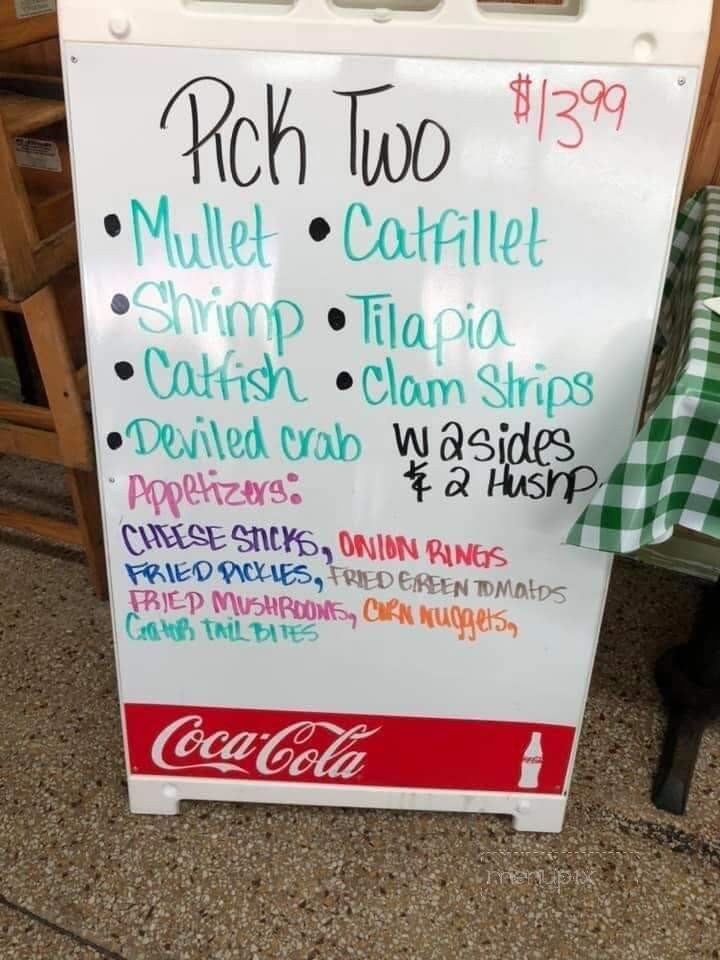 Pick Two $13.99
• Mullet • Catfillet
• Shrimp • Tilapia
• Catfish • Clam Strips
• Deviled crab W 2 sides
& 2 Hushp.
Appetizers:
CHEESE STICKS, ONION RINGS
FRIED PICKLES, FRIED GREEN TOMATOS
FRIED MUSHROOMS, CORN Nuggets,
Gator TAIL BITES
Coca-Cola
menupix